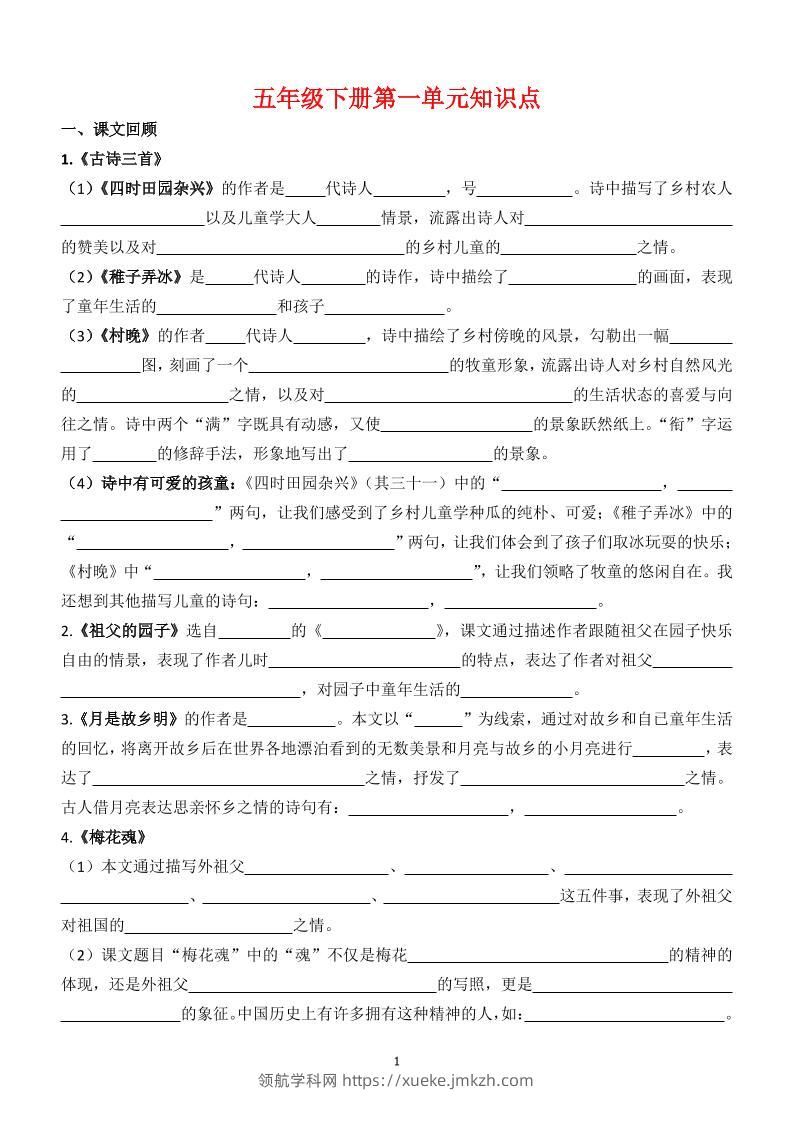 五年级下册第一单元知识点
一、课文回顾
1.《古诗三首》
（1）《四时田园杂兴》的作者是_____代诗人_________，号____________。诗中描写了乡村农人
__________________以及儿童学大人________情景，流露出诗人对__________________________
的赞美以及对_______________________________的乡村儿童的_________________之情。
（2）《稚子弄冰》是______代诗人________的诗作，诗中描绘了________________的画面，表现
了童年生活的_______________和孩子_______________。
（3）《村晚》的作者_____代诗人_________，诗中描绘了乡村傍晚的风景，勾勒出一幅________
__________图，刻画了一个_________________________的牧童形象，流露出诗人对乡村自然风光
的___________________之情，以及对_______________________________的生活状态的喜爱与向
往之情。诗中两个“满”字既具有动感，又使___________________的景象跃然纸上。“衔”字运
用了________的修辞手法，形象地写出了__________________的景象。
（4）诗中有可爱的孩童：《四时田园杂兴》（其三十一）中的“____________________，_______
___________________”两句，让我们感受到了乡村儿童学种瓜的纯朴、可爱；《稚子弄冰》中的
“___________________，___________________”两句，让我们体会到了孩子们取冰玩耍的快乐；
《村晚》中“___________________，___________________”，让我们领略了牧童的悠闲自在。我
还想到其他描写儿童的诗句：____________________，___________________。
2.《祖父的园子》选自_________的《______________》，课文通过描述作者跟随祖父在园子快乐
自由的情景，表现了作者儿时________________________的特点，表达了作者对祖父__________
______________________________，对园子中童年生活的______________。
3.《月是故乡明》的作者是___________。本文以“______”为线索，通过对故乡和自己童年生活
的回忆，将离开故乡后在世界各地漂泊看到的无数美景和月亮与故乡的小月亮进行_________，表
达了__________________________________之情，抒发了____________________________之情。
古人借月亮表达思亲怀乡之情的诗句有：____________________，___________________。
4.《梅花魂》
（1）本文通过描写外祖父__________________、__________________、_____________________
________________、_____________________、______________________这五件事，表现了外祖父
对祖国的_____________________之情。
（2）课文题目“梅花魂”中的“魂”不仅是梅花_________________________________的精神的
体现，还是外祖父_______________________________的写照，更是_________________________
_______________的象征。中国历史上有许多拥有这种精神的人，如：_________________________。
1
领航学科网 https://xueke.jmkzh.com